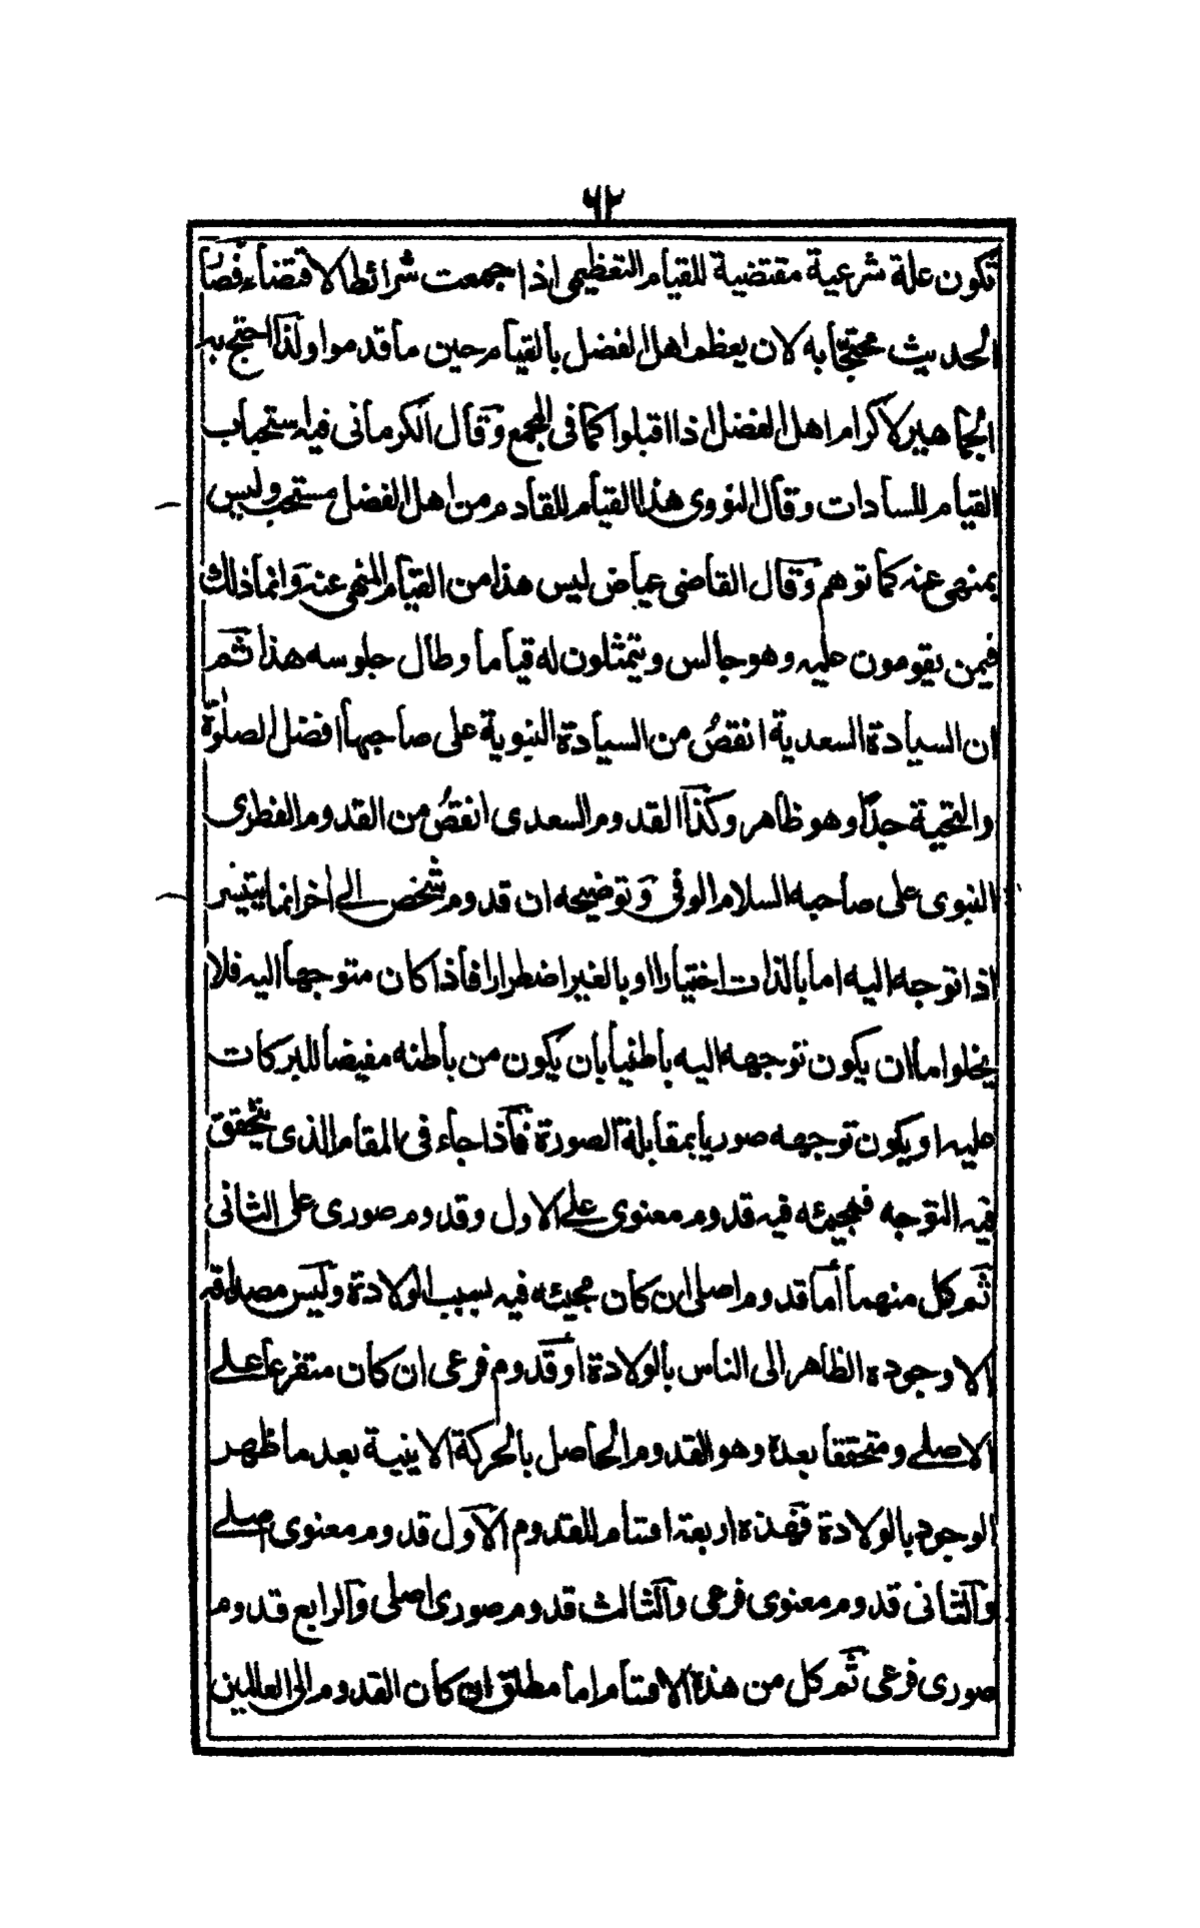 ٦٢
تكون علة شرعية مقتضية للقيام التعظيمى اذا جمعت شرائط الاقتضاء فصا
الحديث محتجا به لان يعظم اهل الفضل بالقيام حين ما قدموا ولذا احتج به
الجماهير لاكرام اهل الفضل اذا اقبلوا كما فى المجمع وقال الكرمانى فيه استحباب
القيام للسادات وقال النووى هذا القيام للقادم من اهل الفضل مستحب وليس
بمنهى عنه كما توهم وقال القاضى عياض ليس هذا من القيام المنهى عنه وانما ذلك
فيمن يقومون عليه وهو جالس ويتمثلون له قياما وطال جلوسه هذا ثم
ان السيادة السعدية انقص من السيادة النبوية على صاحبها افضل الصلوة
والتحية جدا وهو ظاهر وكذا القدوم السعدى انقص من القدوم الفطرى
النبوى على صاحبه السلام الوفى وتوضيحه ان قدوم شخص الى اخر انما يتيسر
اذا توجه اليه اما بالذات اختيارا او بالغير اضطرارا فاذا كان متوجها اليه فلا
يخلوا ما ان يكون توجهه اليه باطنيا بان يكون من باطنه مفيضا للبركات
عليه او يكون توجهه صوريا بمقابلة الصورة فاذا جاء فى المقام الذى يتحقق
فيه التوجه فمجيئه فيه قدوم معنوى على الاول وقدوم صورى على الثانى
ثم كل منهما اما قدوم اصلى ان كان مجيئه فيه بسبب الولادة وليس مصداقه
الا وجوده الظاهر الى الناس بالولادة او قدوم فرعى ان كان متفرعا على
الاصلى ومتحققا بعده وهو القدوم الحاصل بالحركة الاينية بعد ما ظهر
الوجود بالولادة فهذه اربعة اقسام للقدوم الاول قدوم معنوى اصلى
والثانى قدوم معنوى فرعى والثالث قدوم صورى اصلى والرابع قدوم
صورى فرعى ثم كل من هذه الاقسام اما مطلق ان كان القدوم الى العالمين